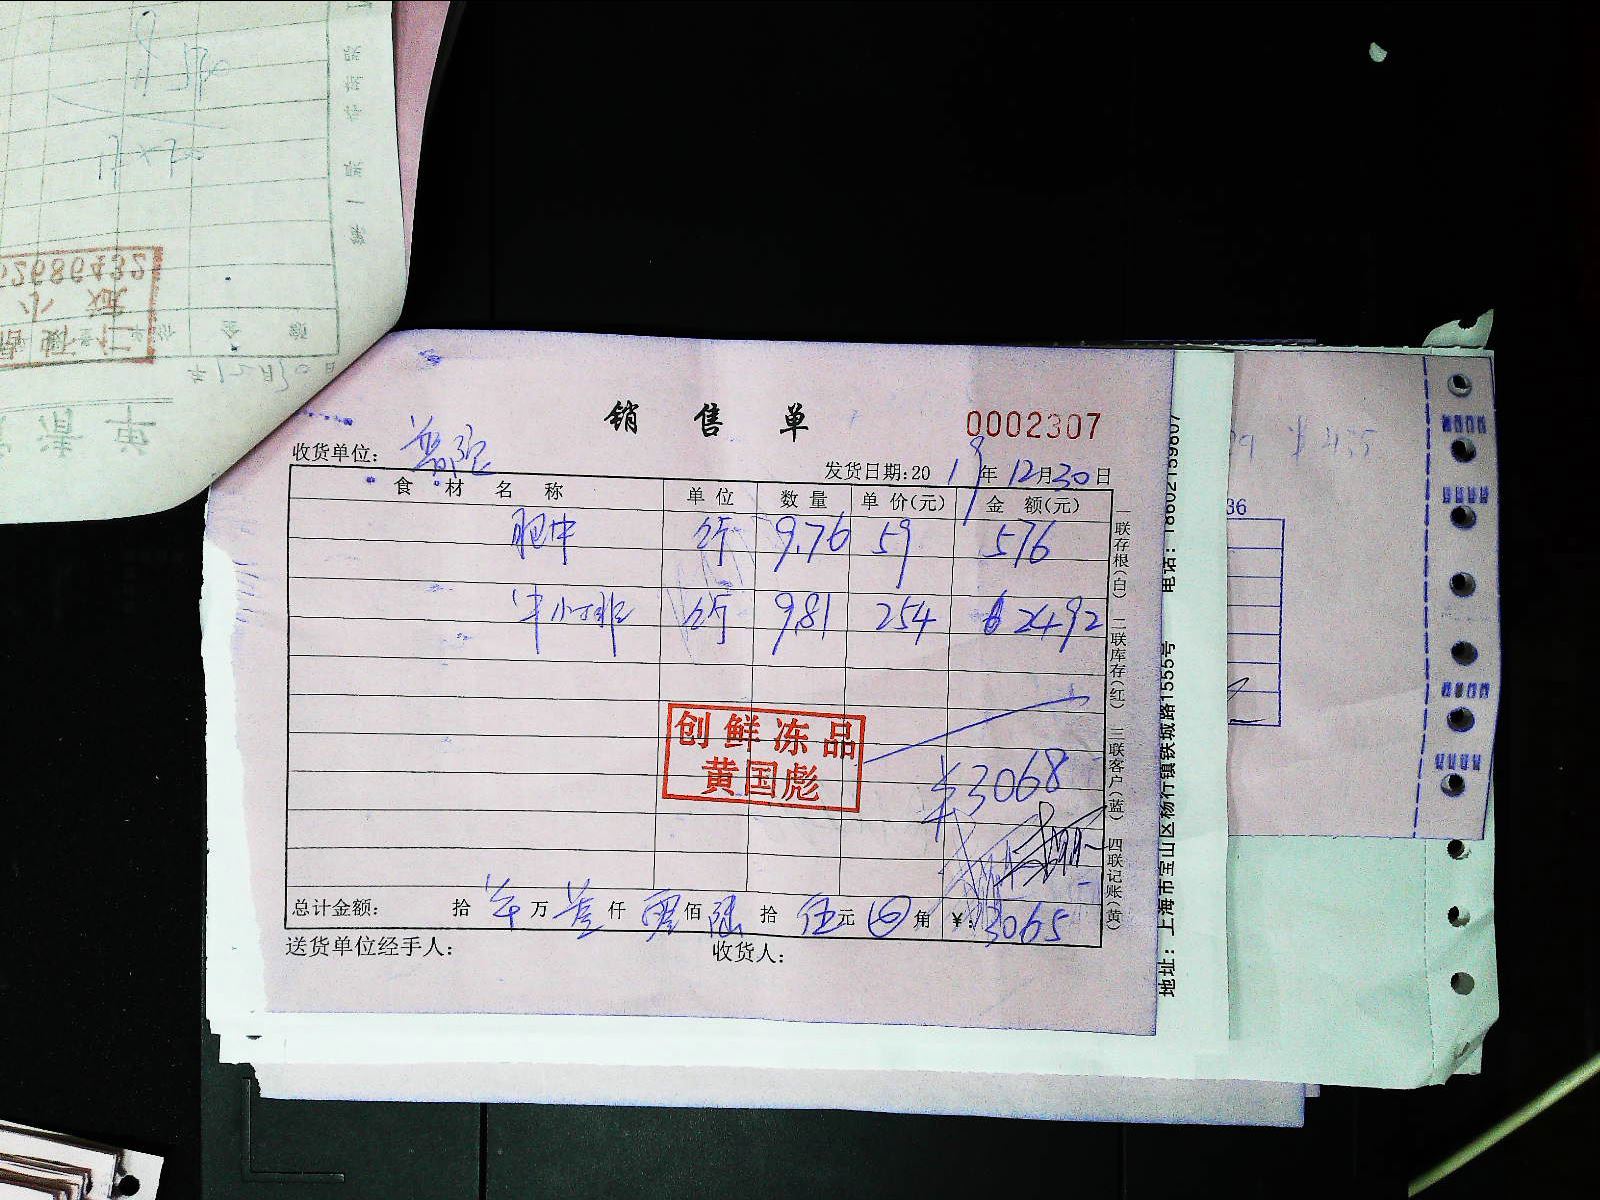 销 售 单
0002307
收货单位: 普陀
发货日期:20 19 年 12 月 30 日
食 材 名 称 单 位 数 量 单 价(元) 金 额(元)
肥牛 斤 9.76 59 576
牛小排 斤 9.81 254 2492
创 鲜 冻 品
黄国彪
¥3068
总计金额: 拾 万 叁 仟 零 佰 陆 拾 伍 元 角 ¥: 3065
送货单位经手人: 收货人:
一联存根(白) 二联库存(红) 三联客户(蓝) 四联记账(黄)
地址: 上海市宝山区杨行镇铁城路1555号 电话: 18602159807
36
52686432